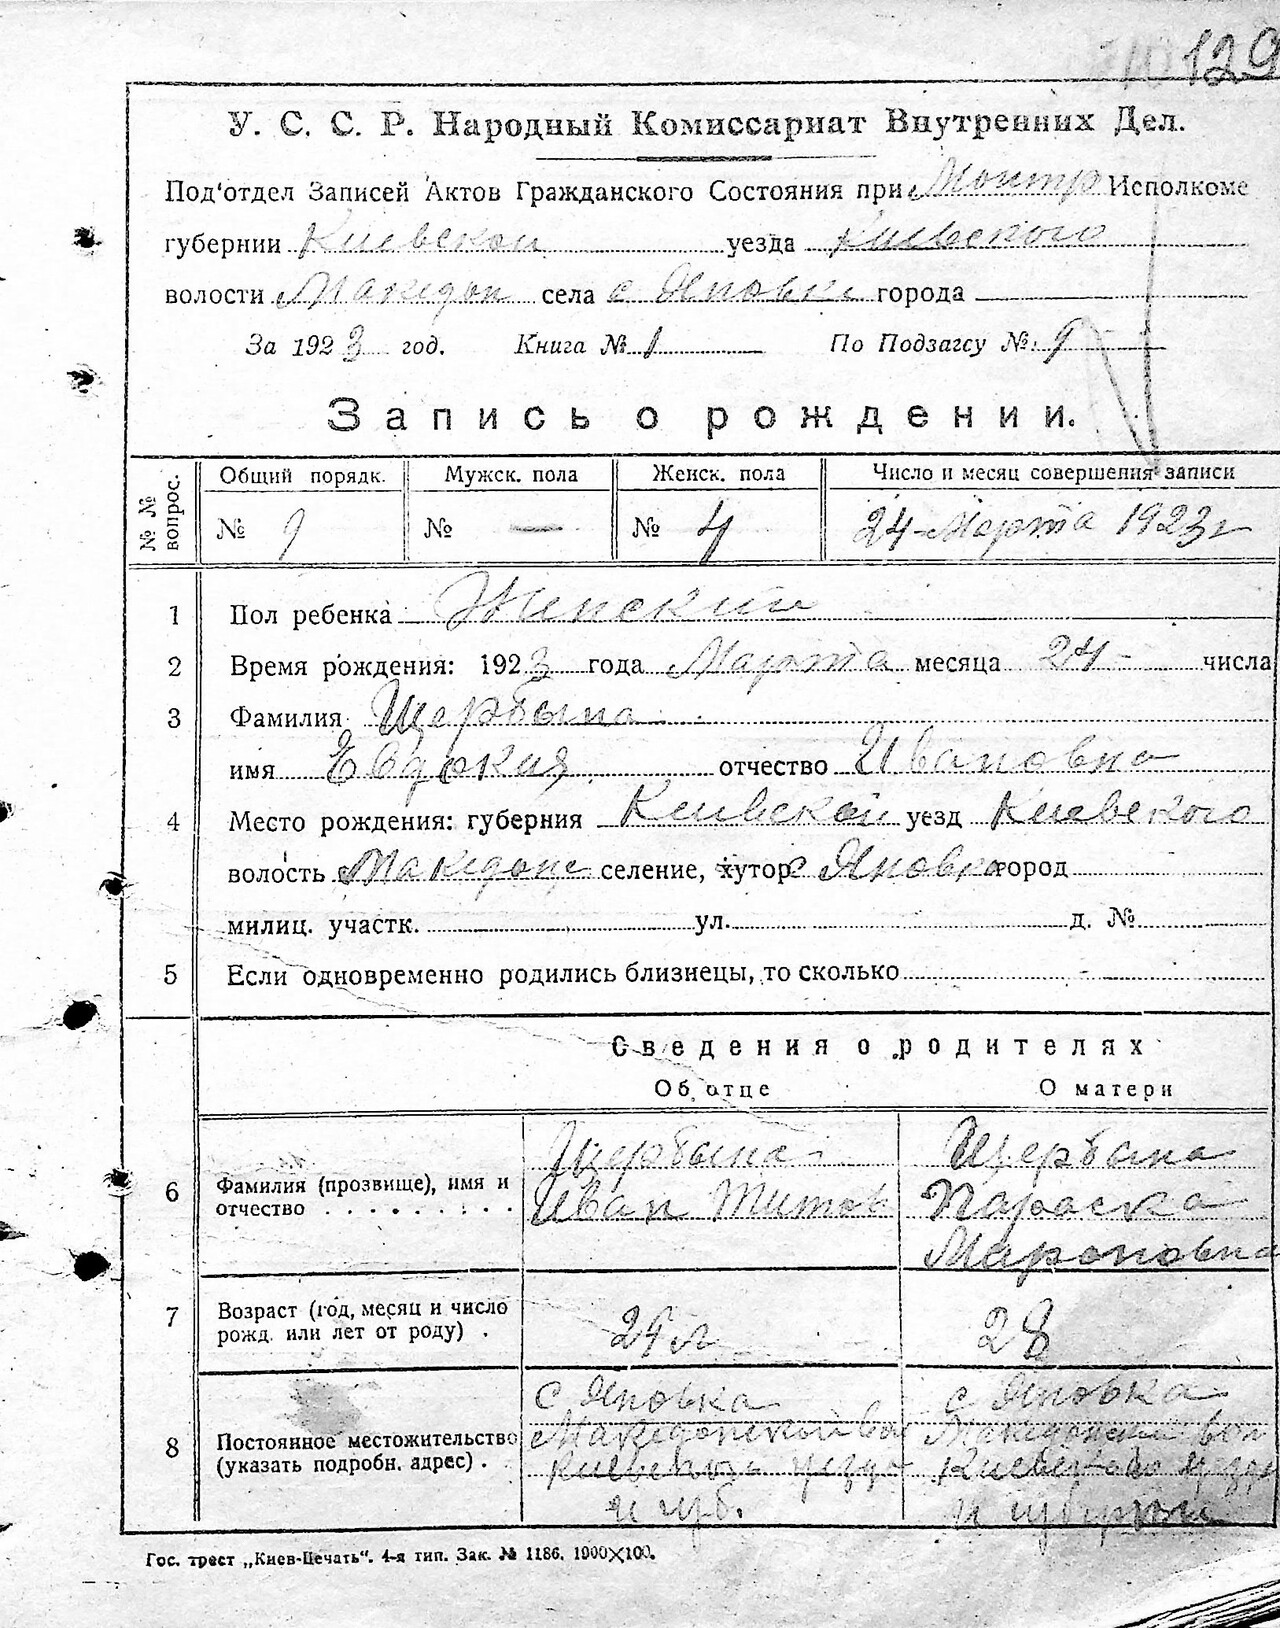 129
У. С. С. Р. Народный Комиссариат Внутренних Дел.
Под'отдел Записей Актов Гражданского Состояния при Исполкоме
губернии Киевской уезда Киевского
волости Македон села с Яновки города
За 1923 год. Книга № 1 По Подзагсу № 9
Запись о рождении.
№ № вопрос. Общий порядк. Мужск. пола Женск. пола Число и месяц совершения записи
№ 9 № — № 4 24 Марта 1923 г
1 Пол ребенка Женский
2 Время рождения: 1923 года Марта месяца 24 числа
3 Фамилия Щербына
имя Евдокия отчество Ивановна
4 Место рождения: губерния Киевской уезд Киевского
волость селение, хутор с Яновка город
милиц. участк. ул. д. №
5 Если одновременно родились близнецы, то сколько
Сведения о родителях
Об отце О матери
6 Фамилия (прозвище), имя и отчество
Щербына Иван Титов
Щербына Параска Мароновна
7 Возраст (год, месяц и число рожд. или лет от роду) . 29 л 28
8 Постоянное местожительство (указать подробн. адрес) .
с Яновка Македонской вол Киевского уезда и губ.
с Яновка Македонской вол Киевского уезда и губернии
Гос. трест „Киев-Печать“. 4-я тип. Зак. № 1186. 1900×100.